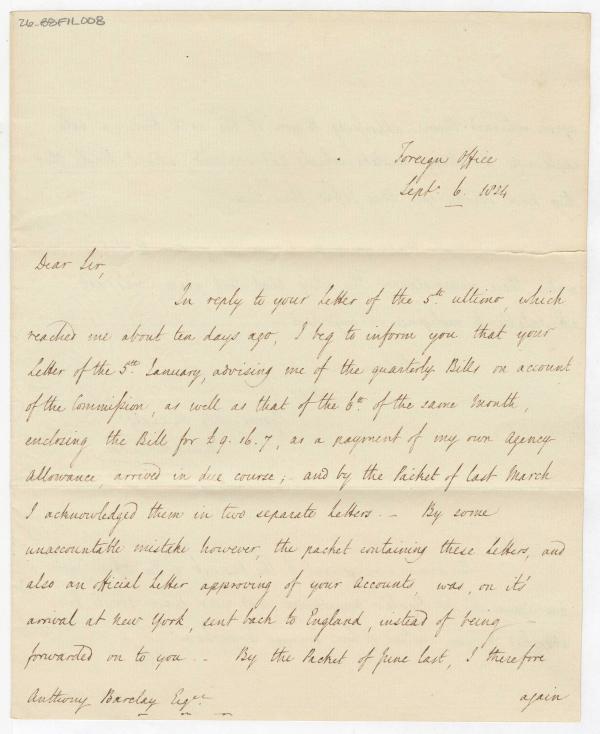 26-88FIL008
Foreign Office
Septr. 6. 1824
Dear Sir,
In reply to your Letter of the 5th ultimo, which
reached me about ten days ago, I beg to inform you that your
Letter of the 5th January, advising me of the quarterly Bills on account
of the Commission, as well as that of the 6th of the same Month,
enclosing the Bill for £9.16.7, as a payment of my own Agency
Allowance, arrived in due course; - and by the Packet of last March
I acknowledged them in two separate Letters. - By some
unaccountable mistake however, the packet containing these Letters, and
also an official Letter approving of your Accounts, was, on it's
arrival at New York, sent back to England, instead of being -
forwarded on to you. - By the Packet of June last, I therefore
Anthony Barclay Esqre. again